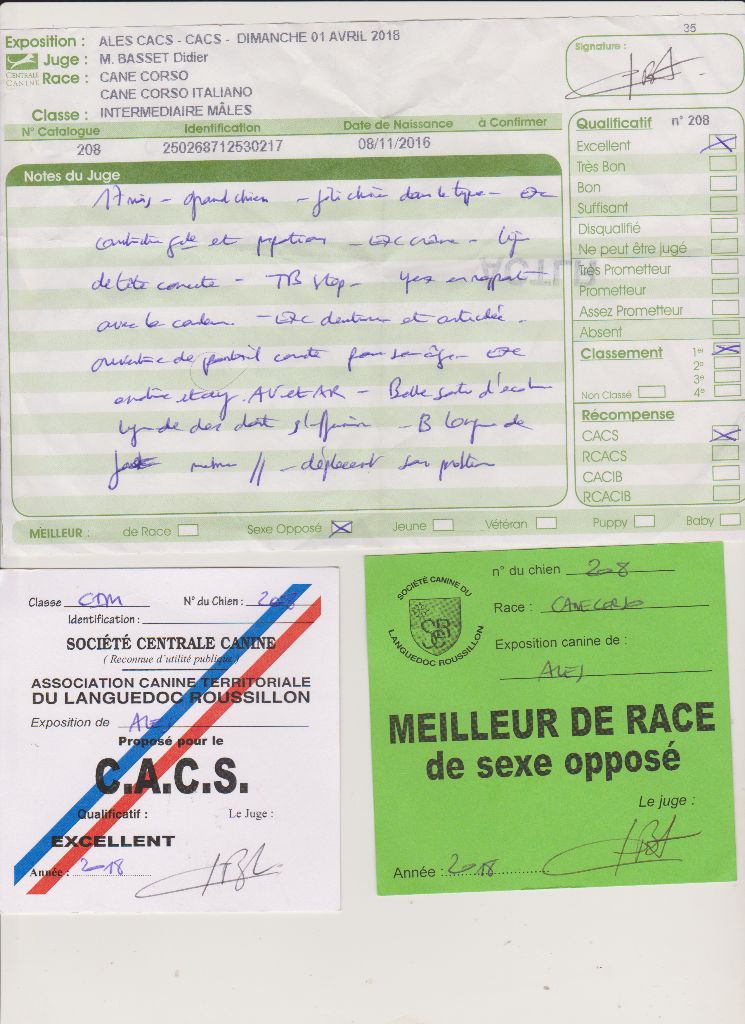 35
Exposition : ALES CACS - CACS - DIMANCHE 01 AVRIL 2018
Juge : M. BASSET Didier
CENTRALE CANINE
Race : CANE CORSO
CANE CORSO ITALIANO
Classe : INTERMEDIAIRE MÂLES
Signature :
N° Catalogue Identification Date de Naissance à Confirmer
208 250268712530217 08/11/2016
Notes du Juge
17 mois - grand chien - joli chien dans le type - exc
et proportions - exc crâne -
de tête correcte - TB stop - yeux en rapport
avec la couleur - exc denture et articulée.
ouverture de poitrail correcte pour son âge - exc
AV et AR - Belle
- B longueur de
// - déplacement
Qualificatif n° 208
Excellent
Très Bon
Bon
Suffisant
Disqualifié
Ne peut être jugé
Très Prometteur
Prometteur
Assez Prometteur
Absent
Classement 1er
2e
3e
Non Classé 4e
Récompense
CACS
RCACS
CACIB
RCACIB
MEILLEUR : de Race Sexe Opposé Jeune Vétéran Puppy Baby
Classe CDM N° du Chien : 208
Identification :
SOCIÉTÉ CENTRALE CANINE
( Reconnue d'utilité publique )
ASSOCIATION CANINE TERRITORIALE
DU LANGUEDOC ROUSSILLON
Exposition de ALES
Proposé pour le
C.A.C.S.
Qualificatif : Le Juge :
EXCELLENT
Année : 2018
SOCIÉTÉ CANINE DU
LANGUEDOC ROUSSILLON
n° du chien 208
Race : CANE CORSO
Exposition canine de :
ALES
MEILLEUR DE RACE
de sexe opposé
Le juge :
Année : 2018